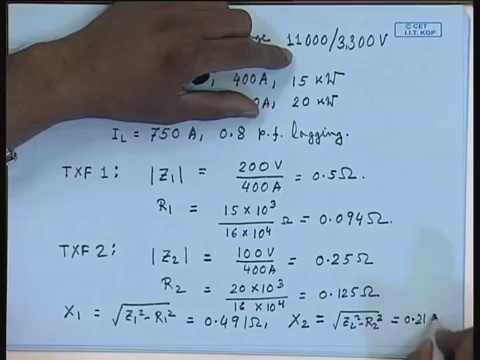 © CET
I.I.T. KGP
11000/3,300 V
400A, 15 kW
0A, 20 kW
I_L = 750 A, 0.8 p.f. lagging.
TXF 1: |Z₁| = 200 V / 400 A = 0.5 Ω.
R₁ = 15 × 10³ / 16 × 10⁴ Ω = 0.094 Ω.
TXF 2: |Z₂| = 100 V / 400 A = 0.25 Ω
R₂ = 20 × 10³ / 16 × 10⁴ = 0.125 Ω
X₁ = √(Z₁² - R₁²) = 0.491 Ω, X₂ = √(Z₂² - R₂²) = 0.21